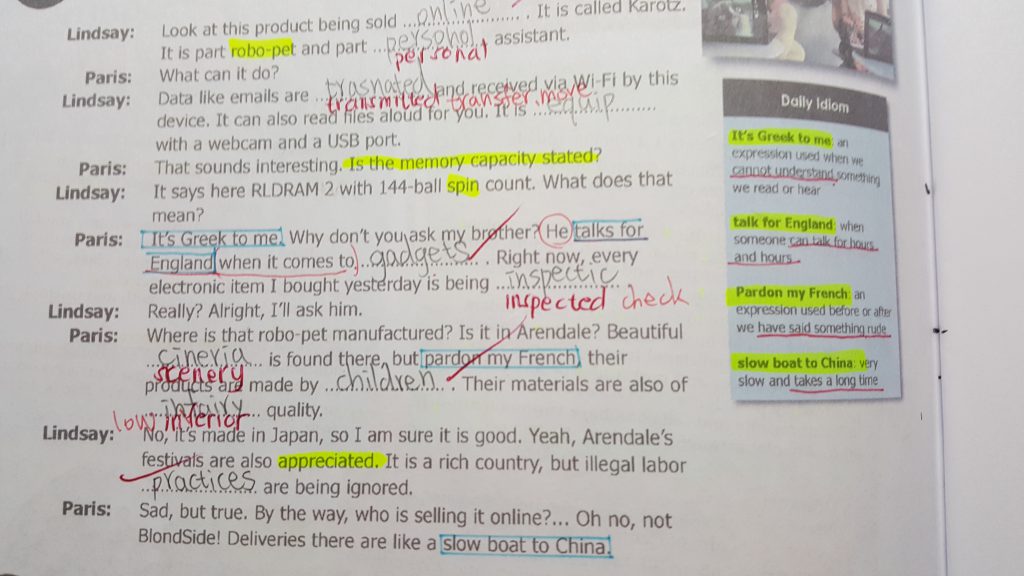 Lindsay: Look at this product being sold ...online... . It is called Karotz.
It is part robo-pet and part ...persohol... assistant.
personal
Paris: What can it do?
Lindsay: Data like emails are ...trasnated... and received via Wi-Fi by this
transmitted transfer, move
device. It can also read files aloud for you. It is ...equip...
with a webcam and a USB port.
Paris: That sounds interesting. Is the memory capacity stated?
Lindsay: It says here RLDRAM 2 with 144-ball spin count. What does that
mean?
Paris: It's Greek to me. Why don't you ask my brother? He talks for
England when it comes to ...gadgets... . Right now, every
electronic item I bought yesterday is being ...inspectic... .
inspected check
Lindsay: Really? Alright, I'll ask him.
Paris: Where is that robo-pet manufactured? Is it in Arendale? Beautiful
...cineria... is found there, but pardon my French, their
scenery
products are made by ...children... . Their materials are also of
... quality.
low inferior
Lindsay: No, it's made in Japan, so I am sure it is good. Yeah, Arendale's
festivals are also appreciated. It is a rich country, but illegal labor
...practices... are being ignored.
Paris: Sad, but true. By the way, who is selling it online?... Oh no, not
BlondSide! Deliveries there are like a slow boat to China.
Daily Idiom
It's Greek to me: an
expression used when we
cannot understand something
we read or hear
talk for England: when
someone can talk for hours
and hours
Pardon my French: an
expression used before or after
we have said something rude
slow boat to China: very
slow and takes a long time